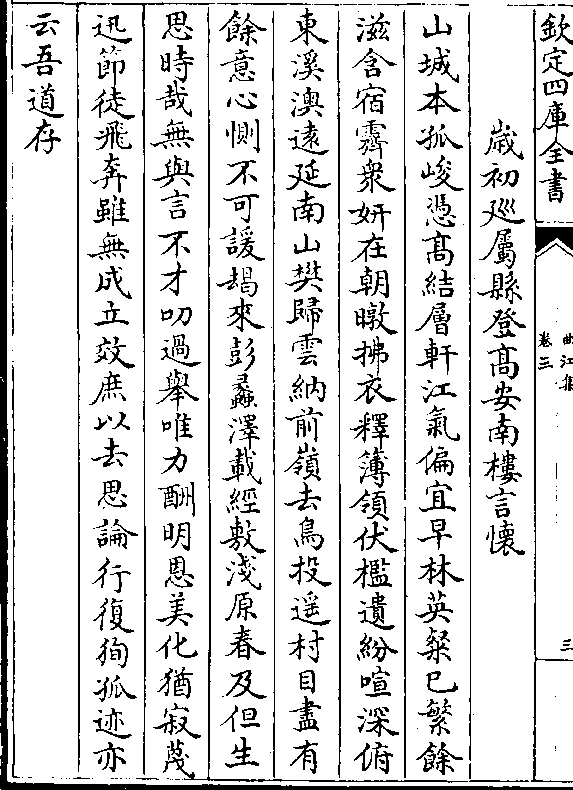 欽定四庫全書
曲江集
卷三
三
歲初廵屬縣登髙安南樓言懷
山城本孤峻憑髙結層軒江氣偏宜早林英粲已繁餘
滋含宿霽衆妍在朝暾拂衣釋簿領伏檻遺紛喧深俯
東溪澳遠延南山樊歸雲納前嶺去鳥投遥村目盡有
餘意心惻不可諼朅來彭蠡澤載經敷淺原春及但生
思時哉無與言不才叨過舉唯力酬明恩美化猶寂蔑
迅節徒飛奔雖無成立效庶以去思論行復徇孤迹亦
云吾道存